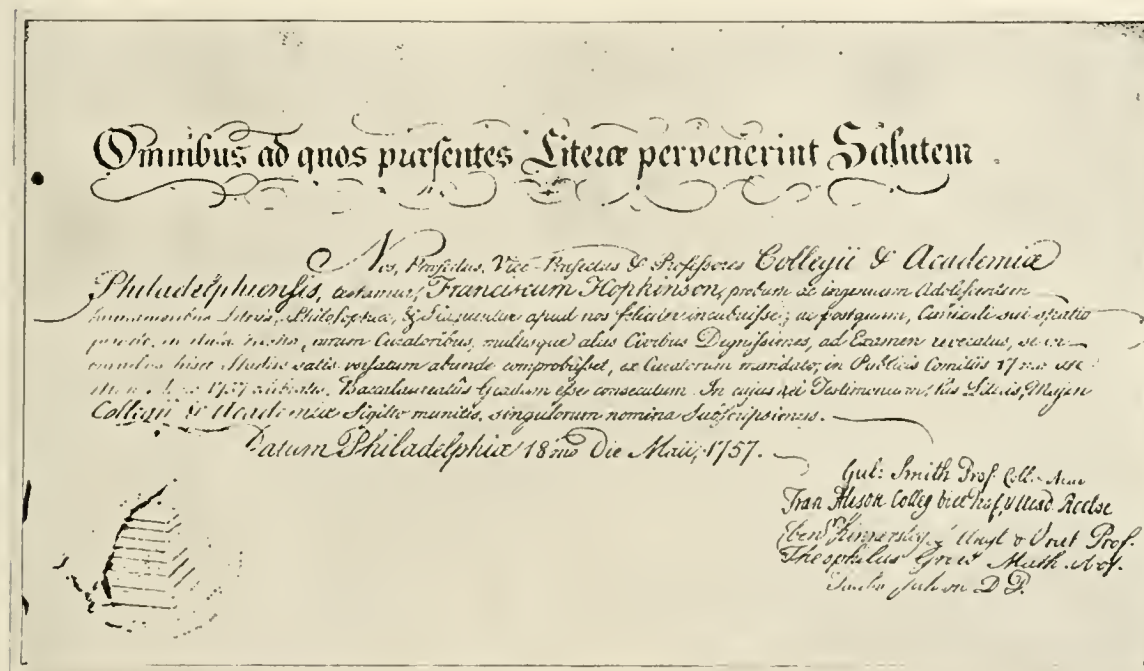 Omnibus ad quos præsentes Literæ pervenerint Salutem
Nos, Præfectus, Vice-Præfectus & Professores Collegii & Academiæ
Philadelphiensis, testamur, Franciscum Hopkinson, probum ac ingenuum Adolescentem
Literis, Philosophiæ, & apud nos feliciter incubuisse; ac postquam, Curriculi sui spatio
, nostrum Curatoribus, multisque aliis Civibus Dignissimis, ad Examen revocatus, se in
omnibus hisce Studiis satis versatum abunde comprobâsset, ex Curatorum mandato, in Publicis Comitiis 17mo
1757 celebratis, Baccalaureatûs Gradum esse consecutum. In cujus rei Testimonium, his Literis, Majori
Collegii & Academiæ Sigillo munitis, singulorum nomina Subscripsimus.
Datum Philadelphiæ 18mo Die Maii, 1757.
Gul: Smith Præf. Coll.
Fran Alison Colleg & Acad. Rector
Eben Kinnersley, Angl & Orat Prof.
Theophilus Grew Math. Prof.